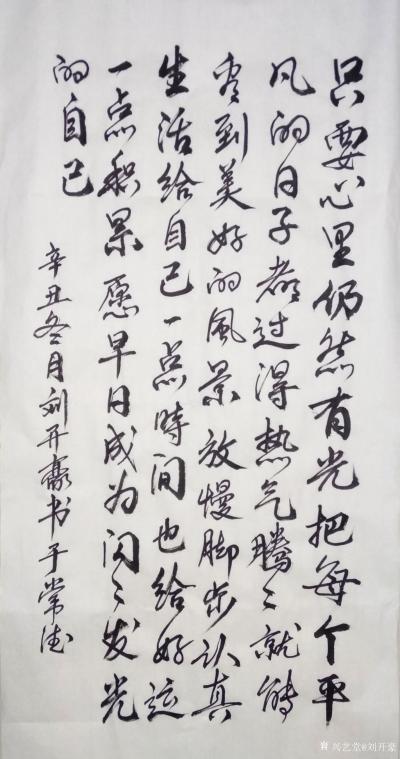 只要心里仍然有光把每个平
凡的日子都过得热气腾〻就能
看到美好的風景放慢脚步认真
生活给自己一点時间也给好运
一点积累愿早日成为闪〻发光
的自己
辛丑冬月刘开豪书于常德
兴艺堂@刘开豪